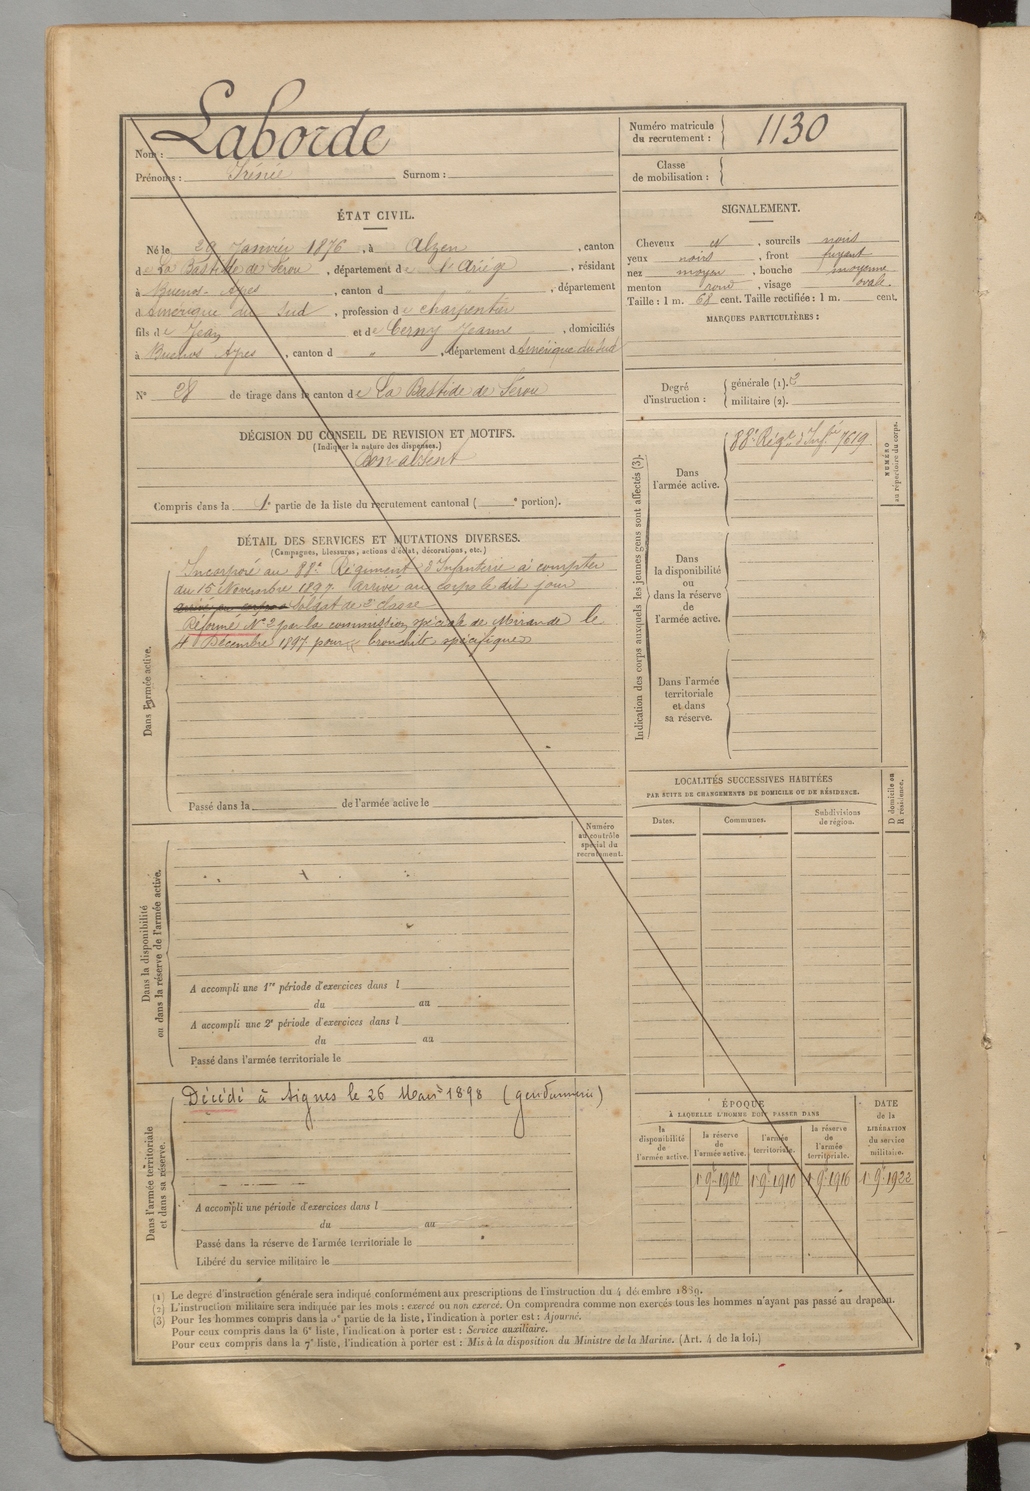 Nom : Laborde
Prénoms : Irénée Surnom :
Numéro matricule
du recrutement : 1130
Classe
de mobilisation :
ÉTAT CIVIL.
Né le 29 Janvier 1876, à Alzen, canton
de La Bastide de Sérou, département de l'Ariège, résidant
à Buenos-Ayres, canton d , département
d'Amérique du Sud, profession de charpentier
fils de Jean et de Cerny Jeanne, domiciliés
à Buenos Ayres, canton d " , département d'Amérique du Sud
N° 28 de tirage dans le canton de La Bastide de Sérou
SIGNALEMENT.
Cheveux et , sourcils noirs
yeux noirs , front fuyant
nez moyen , bouche moyenne
menton rond , visage ovale.
Taille : 1 m. 68 cent. Taille rectifiée : 1 m. cent.
MARQUES PARTICULIÈRES :
Degré
d'instruction :
générale (1). 2
militaire (2).
DÉCISION DU CONSEIL DE REVISION ET MOTIFS.
(Indiquer la nature des dispenses.)
Bon absent
Compris dans la 1e partie de la liste du recrutement cantonal ( e portion).
DÉTAIL DES SERVICES ET MUTATIONS DIVERSES.
(Campagnes, blessures, actions d'éclat, décorations, etc.)
Dans l'armée active.
Incorporé au 88e Régiment d'Infanterie à compter
du 15 Novembre 1897. Arrivé au corps le dit jour
arrivé au corps Soldat de 2e classe
Réformé N° 2 par la commission spéciale de Mirande le
4 Décembre 1897 pour « bronchite spécifique »
Passé dans la de l'armée active le
Indication des corps auxquels les jeunes gens sont affectés (3).
Dans
l'armée active.
88e Régt d'Infie 7619
NUMÉRO
au répertoire du corps.
Dans
la disponibilité
ou
dans la réserve
de
l'armée active.
Dans l'armée
territoriale
et dans
sa réserve.
LOCALITÉS SUCCESSIVES HABITÉES
PAR SUITE DE CHANGEMENTS DE DOMICILE OU DE RÉSIDENCE.
Dates.
Communes.
Subdivisions
de région.
D domicile ou
R résidence.
Numéro
au contrôle
spécial du
recrutement.
Dans la disponibilité
ou dans la réserve de l'armée active.
A accompli une 1re période d'exercices dans l
du au
A accompli une 2e période d'exercices dans l
du au
Passé dans l'armée territoriale le
Dans l'armée territoriale
et dans sa réserve.
Décédé à Aignes le 26 Mars 1898 (gendarmerie)
A accompli une période d'exercices dans l
du au
Passé dans la réserve de l'armée territoriale le
Libéré du service militaire le
ÉPOQUE
À LAQUELLE L'HOMME DOIT PASSER DANS
la
disponibilité
de
l'armée active.
la réserve
de
l'armée active.
l'armée
territoriale.
la réserve
de
l'armée
territoriale.
DATE
de la
LIBÉRATION
du service
militaire.
1r 9e 1900 1r 9e 1910 1r 9e 1916 1r 9e 1922
(1) Le degré d'instruction générale sera indiqué conformément aux prescriptions de l'instruction du 4 décembre 1889.
(2) L'instruction militaire sera indiquée par les mots : exercé ou non exercé. On comprendra comme non exercés tous les hommes n'ayant pas passé au drapeau.
(3) Pour les hommes compris dans la 5e partie de la liste, l'indication à porter est : Ajourné.
Pour ceux compris dans la 6e liste, l'indication à porter est : Service auxiliaire.
Pour ceux compris dans la 7e liste, l'indication à porter est : Mis à la disposition du Ministre de la Marine. (Art. 4 de la loi.)